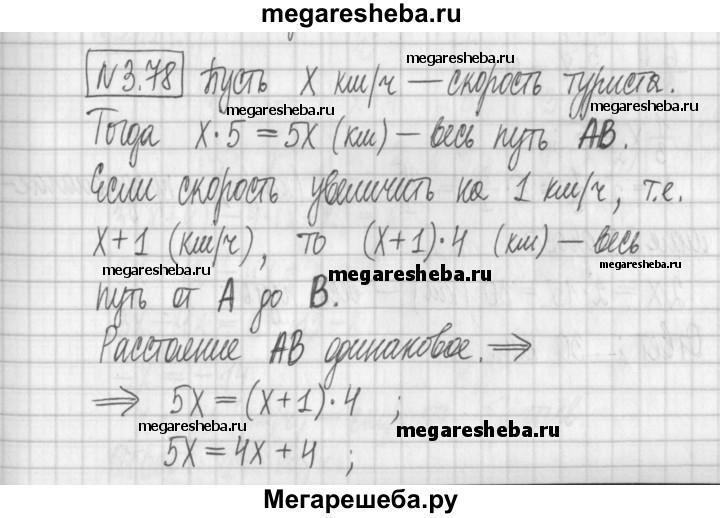 megaresheba.ru
megaresheba.ru
N3.78 Пусть x км/ч — скорость туриста.
megaresheba.ru megaresheba.ru
Тогда x·5 = 5x (км) — весь путь AB.
Если скорость увеличить на 1 км/ч, т.е.
x+1 (км/ч), то (x+1)·4 (км) — весь
megaresheba.ru megaresheba.ru megaresheba.ru
путь от A до B.
Расстояние AB одинаковое. ⇒
⇒ 5x = (x+1)·4 ;
megaresheba.ru megaresheba.ru
5x = 4x + 4 ;
Мегарешеба.ру